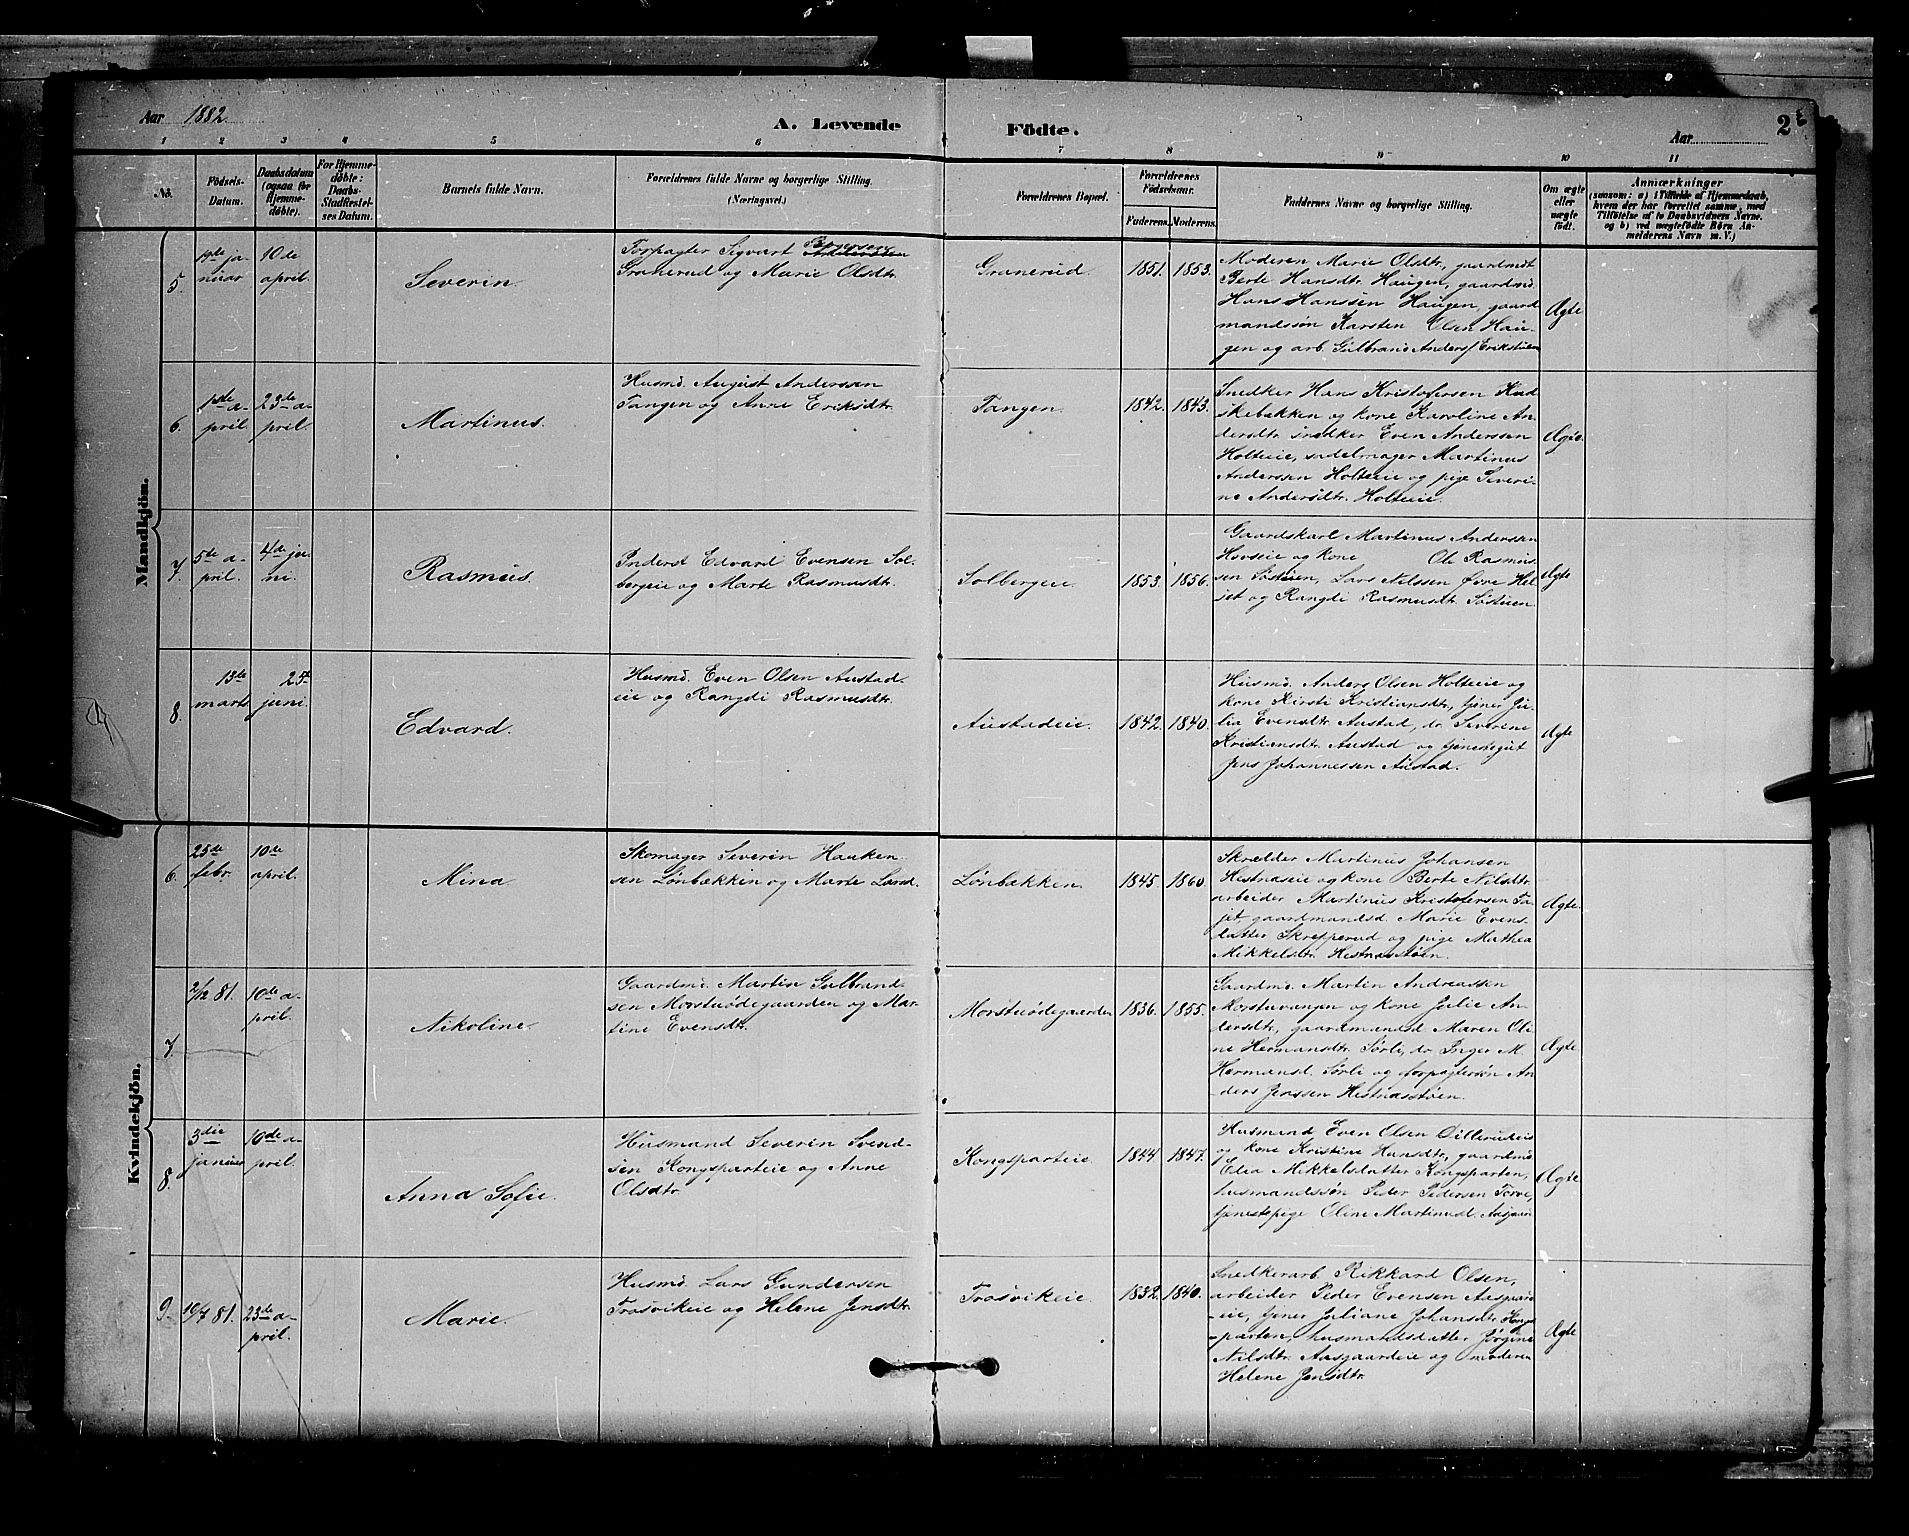 Aar 1882.
A. Levende Födte.
Aar
2
1 2 3 4 5 6 7 8 9 10 11
No.
Födsels-
Datum.
Daabsdatum
(ogsaa for
Hjemme-
döbte).
For Hjemme-
döbte:
Daabs-
Stadfæstel-
ses Datum.
Barnets fulde Navn.
Forældrenes fulde Navne og borgerlige Stilling.
(Næringsvei.)
Forældrenes Bopæl.
Forældrenes
Födselsaar.
Faderens. Moderens.
Faddernes Navne og borgerlige Stilling.
Om ægte
eller
uægte
födt.
Anmærkninger
(saasom: a) i Tilfælde af Hjemmedaab,
hvem der har forrettet samme, med
Tilföielse af to Daabsvidners Navne.
og b) ved uægtefödte Börn An-
melderens Navn m. V.)
Mandkjön.
5.
1ste ja-
nuar
10de
april.
Severin.
Forpagter Sigvart
Granerud og Marie Olsdtr.
Granerud.
1851. 1853.
Moderen Marie Olsdtr, gaardmdt
Berte Hansdtr. Haugen, gaardmd.
Hans Hanssen Haugen, gaard
mandssøn Karsten Olsen Hau-
gen og arb. Gulbrand Anders Erikstuen
Ægte
6.
1ste a-
pril.
23de a-
pril.
Martinus.
Husmd. August Anderssen
Tangen og Anne Eriksdtr.
Tangen.
1842. 1843.
Snedker Hans Kristofersen Hud
skebakken og kone Karoline An-
dersdtr. snedker Even Anderssen
Holteie, sadelmager Martinus
Anderssen Holteie og pige Severi-
ne Andersdtr. Holteie.
Ægte.
7.
5te a-
pril.
4de ju-
ni.
Rasmus.
Inderst Edvard Evensen Sol-
bergeie og Marte Rasmusdtr.
Solbergeie.
1853. 1856.
Gaardskarl Martinus Anderssen
Hovseie og kone Ole Rasmus
sen Søstuen, Lars Nilssen Øvre Hel-
jet og Rangdi Rasmusdtr. Søstuen.
Ægte
8.
13de
marts
25de
juni.
Edvard.
Husmd. Even Olsen Austad-
eie og Rangdi Rasmusdtr.
Austadeie.
1842. 1840.
Husmd. Anders Olsen Holteie og
kone Kirsti Kristiansdtr, tjener Ju-
lia Evensdtr Austad, do Severine
Kristiansdtr. Austad og tjenestegut
Jens Johannessen Austad.
Ægte
Kvindekjön.
6.
25de
febr.
10de
april.
Mina.
Skomager Severin Hauken-
sen Lønbækkin og Marte Larsd.
Lønbækken.
1845. 1860.
Skrædder Martinus Johansen
Hestnæseie og kone Berte Nilsdtr.
arbeider Martinus Kristofersen Fa-
jet, gaardmandsd. Marie Evens-
datter Skrepperud og pige Mathea
Mikkelsdtr. Hestnæsstøen.
Ægte.
7.
2/12 81.
10de a-
pril.
Nikoline
Gaardmd. Martin Gulbrand-
sen Morstuødegaarden og Mar-
tine Evensdtr.
Morstuødegaarden
1836. 1855.
Gaardmd. Martin Andreassen
Morstuvangen og kone Julie An-
dersdtr, gaardmandsd Maren Oli-
ne Hermansdtr. Sørli, do Inger M.
Hermansd. Sørli og forpagtersøn An-
ders Jenssen Hestnæsstøen.
Ægte
8.
3die
januar
10de a-
pril.
Anna Sofie.
Husmand Severin Svend-
sen Kongsparteie og Anne
Olsdtr.
Kongsparteie.
1844. 1847.
Husmand Even Olsen Dillerudeie
og kone Kristine Hansdtr, gaardmd
Elea Mikkelsdatter Kongsparten,
husmandssøn Peder Pedersen Torve,
tjenestepige Oline Martinusd. Aasgaar
Ægte
9.
19/7 81.
23de a-
pril.
Marie.
Husmd. Lars Gundersen
Frosvikeie og Helene Jensdtr.
Frosvikeie.
1832. 1840.
Snedkerarb. Rikkard Olsen,
arbeider Peder Evensen Aasgaard-
eie, tjener Juliane Johansdtr. Kongs-
parten, husmandsdatter Jørgine
Nilsdtr. Aasgaardeie og moderen
Helene Jensdtr.
Ægte